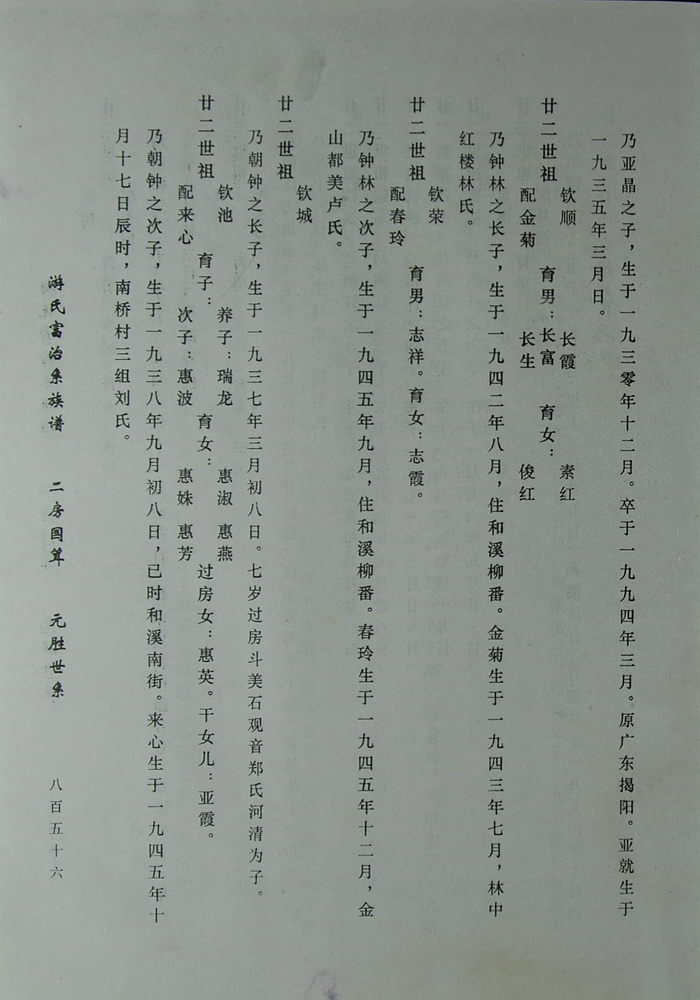 乃亚晶之子，生于一九三零年十二月。卒于一九九四年三月。原广东揭阳。亚就生于
一九三五年三月日。
廿二世祖 钦顺 配金菊 育男：长富 长霞 长生 育女： 素红 俊红
乃钟林之长子，生于一九四二年八月，住和溪柳番。金菊生于一九四三年七月，林中
红楼林氏。
廿二世祖 钦荣 配春玲 育男：志祥。育女：志霞。
乃钟林之次子，生于一九四五年九月，住和溪柳番。春玲生于一九四五年十二月，金
山都美卢氏。
廿二世祖 钦城
乃朝钟之长子，生于一九三七年三月初八日。七岁过房斗美石观音郑氏河清为子。
廿二世祖 钦池 配来心 育子： 养子：瑞龙 次子：惠波 育女： 惠淑 惠燕 惠姝 惠芳 过房女：惠英。干女儿：亚霞。
乃朝钟之次子，生于一九三八年九月初八日，已时和溪南街。来心生于一九四五年十
月十七日辰时，南桥村三组刘氏。
游氏富治系族谱 二房园茸 元胜世系 八百五十六